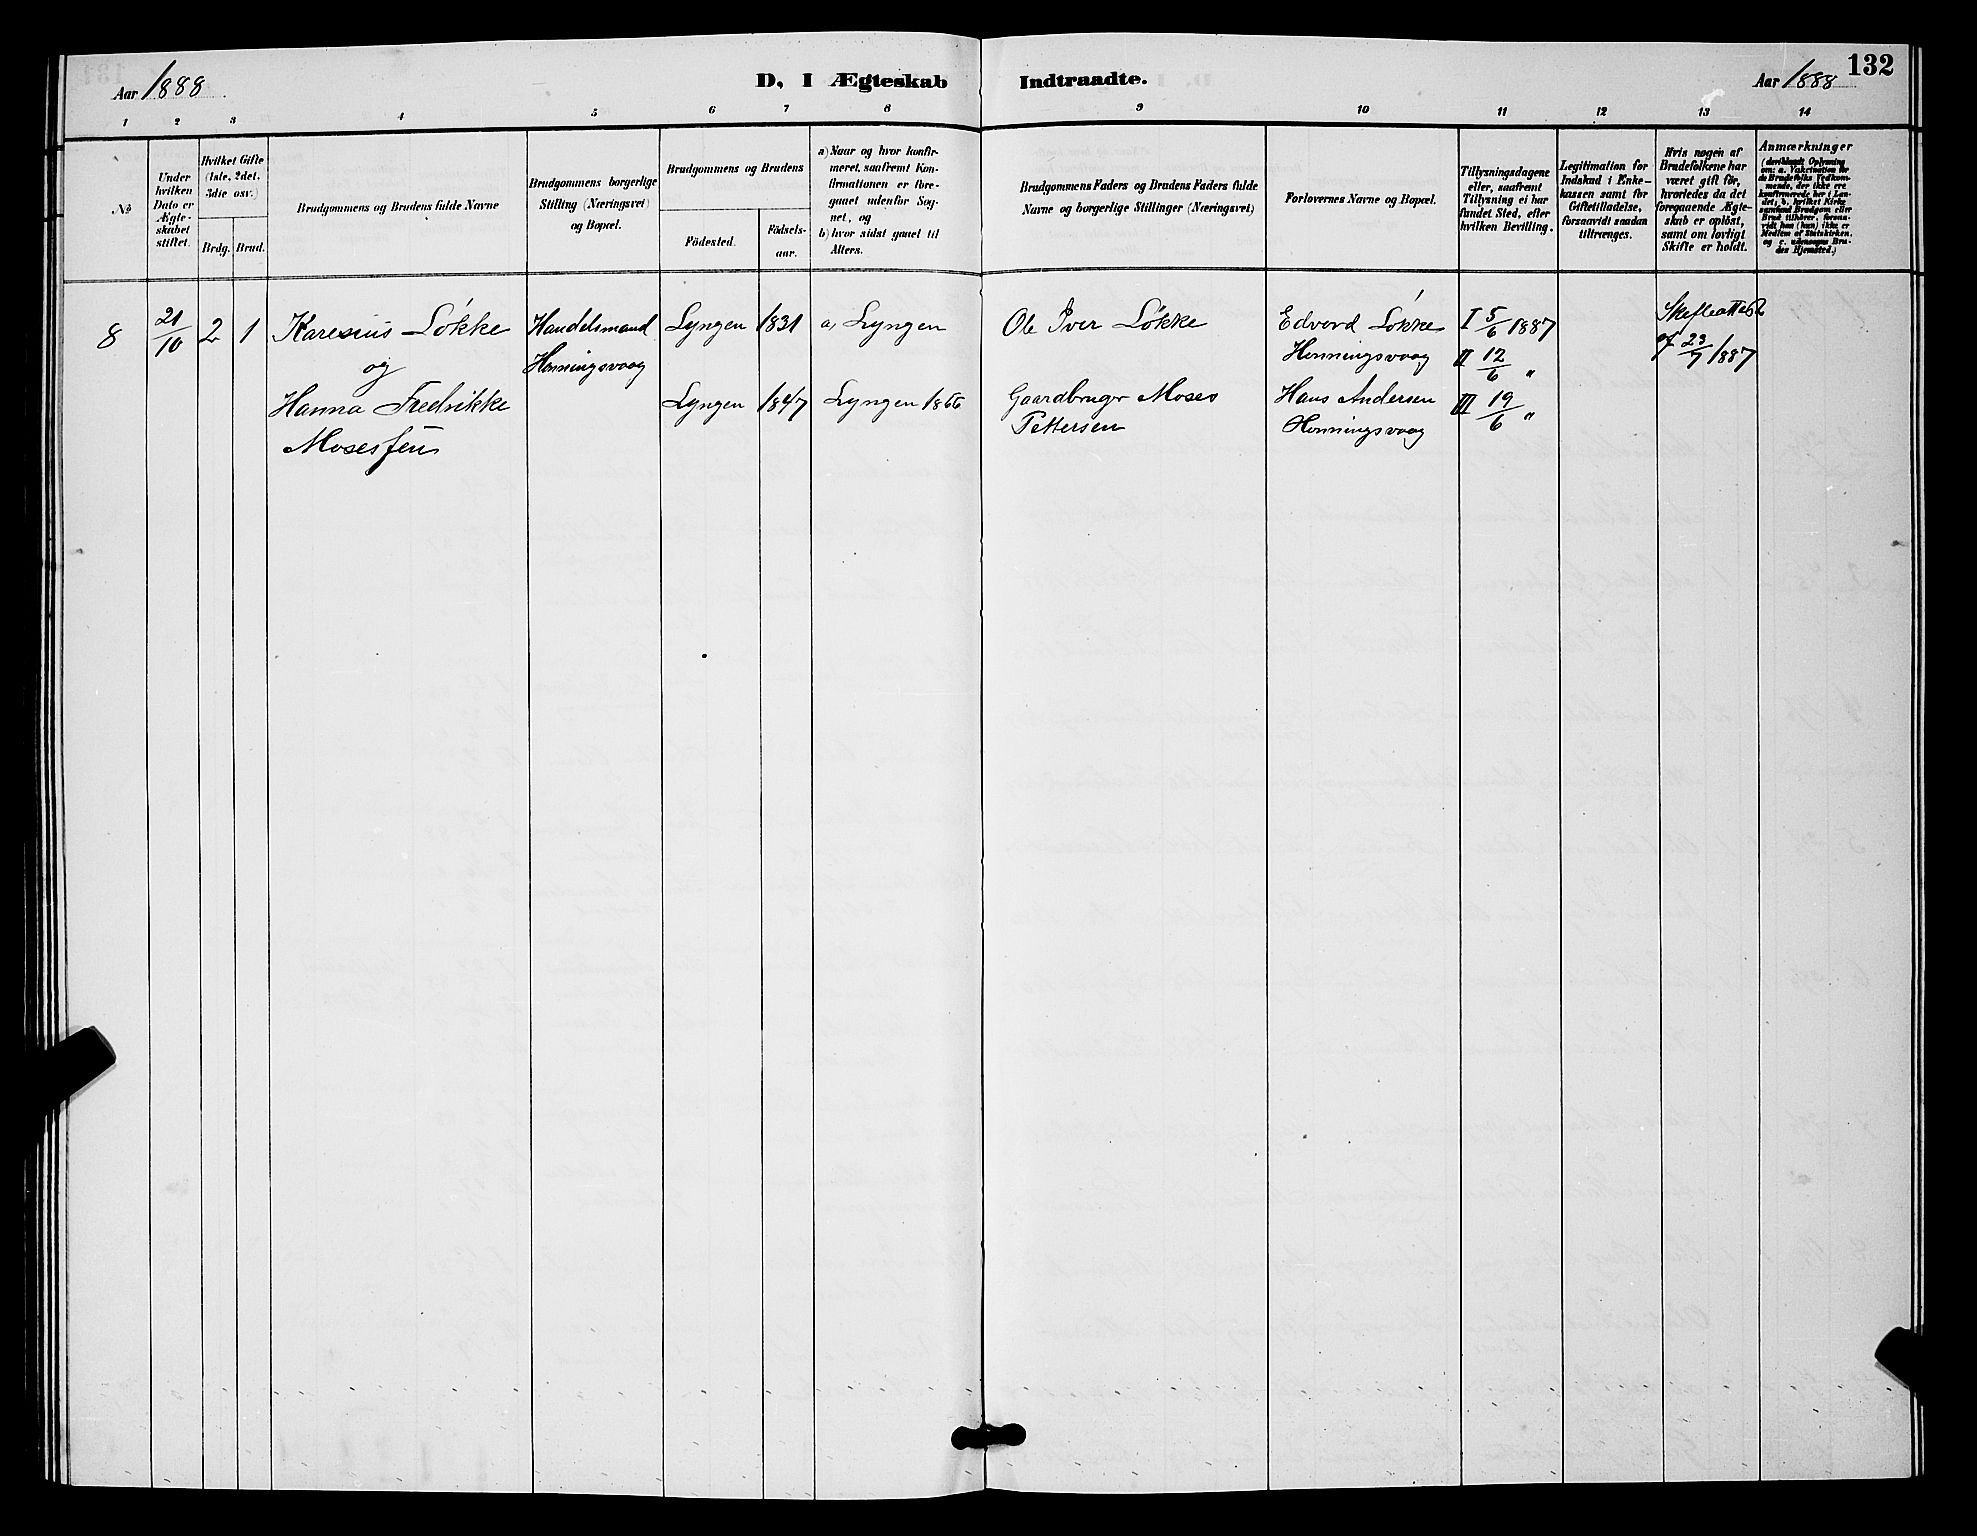 132
Aar 1888
D, I Ægteskab Indtraadte.
Aar 1888
1 2 3 4 5 6 7 8 9 10 11 12 13 14
№
Under
hvilken
Dato er
Ægte-
skabet
stiftet.
Hvilket Gifte
(1ste, 2det,
3die osv.)
Brdg. Brud.
Brudgommens og Brudens fulde Navne
Brudgommens borgerlige
Stilling (Næringsvei)
og Bopæl.
Brudgommens og Brudens
Födested.
Födsels-
aar.
a) Naar og hvor konfir-
meret, saafremt Kon-
firmationen er fore-
gaaet udenfor Sog-
net, og
b) hvor sidst gaaet til
Alters.
Brudgommens Faders og Brudens Faders fulde
Navne og borgerlige Stillinger (Næringsvei)
Forlovernes Navne og Bopæl.
Tillysningsdagene
eller, saafremt
Tillysning ei har
fundet Sted, efter
hvilken Bevilling.
Legitimation for
Indskud i Enke-
kassen samt for
Giftetilladelse,
forsaavidt saadan
tiltrænges.
Hvis nogen af
Brudefolkene har
været gift för,
hvorledes da det
foregaaende Ægte-
skab er oplöst,
samt om lovligt
Skifte er holdt.
Anmærkninger
(deriblandt Oplysning
om: a. Vakcination for
de Brudefolks Vedkom-
mende, der ikke ere
konfirmerede her i Lan-
det; b. hvilket Kirke-
samfund Brudgom eller
Brud tilhører, forsaa-
vidt han (hun) ikke er
Medlem af Statskirken,
og c. udensogns Bru-
des Hjemsted.)
8
21/10
2 1
Karesius Lökke
og
Hanna Fredrikke
Mosesfen
Handelsmand
Honningsvaag
Lyngen 1831
Lyngen 1847
a, Lyngen
Lyngen 1866
Ole Iver Lökke
Gaardbruger Moses
Pettersen
Edvard Lökke
Honningsvaag
Hans Andersen
Honningsvaag
I 5/6 1887
II 12/6 "
III 19/6 "
Skifteattest
af 23/7 1887